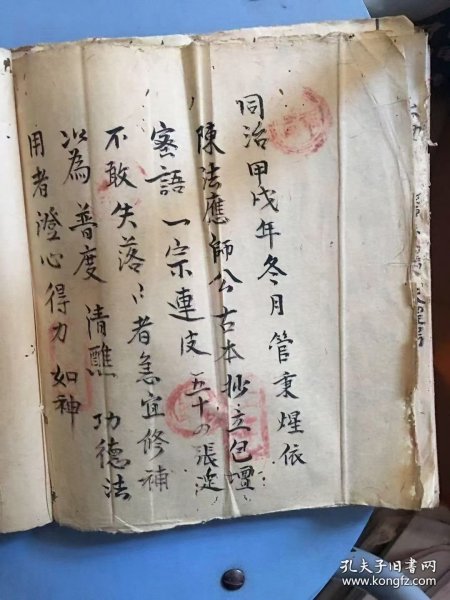 同治甲戌年冬月管秉煋依
陳法應師公古本抄立包壇
密語一宗連皮五十の張定
不敢失落〻者急宜修補
以為普度清醮功德法
用者澄心得力如神
孔夫子旧书网
www.kongfz.com